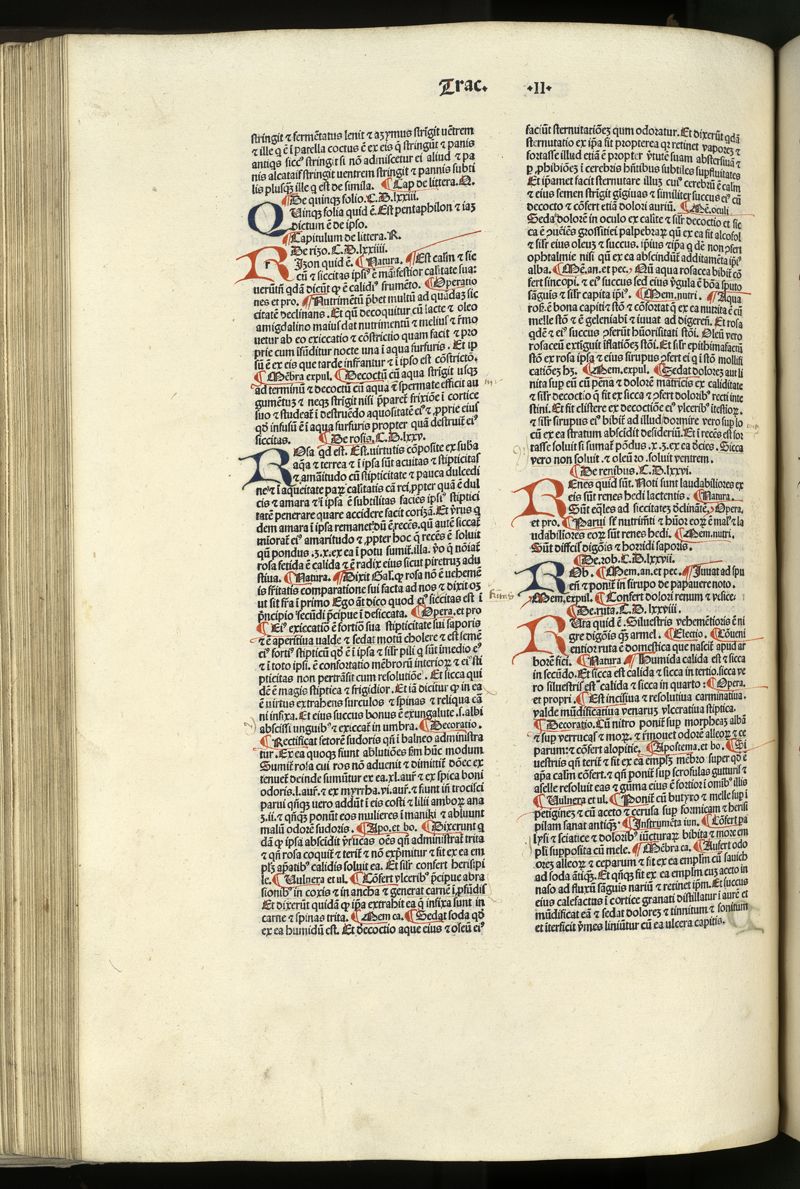 Trac. II
stringit ⁊ fermẽtatus lenit ⁊ azymus strĩgit uẽtrem
⁊ ille q̃ ẽ ĩ patella coctus ẽ ex eis q̃ stringũt ⁊ panis
antiqꝰ siccꝰ stringit si nõ admisceturei aliud ⁊ pa
nis stringit uentrem stringit ⁊ pannis subti
lis plusqȝ ille q̃ est de simila. ¶ Cap de littera. Q.
¶ De quinqȝ folio. C. D. lxxiii.
Quinqȝ folia quid ẽ. Est pentaphilon ⁊ iaȝ
dictum ẽ de ipso.
¶ Capitulum de littera. R.
De rizo. C. D. lxxiiii.
Rizon quid ẽ. ¶ Natura. ¶ Est caƚm ⁊ sic
cũ ⁊ siccitas ipsiꝰ ẽ mãifestior calitate sua:
uerũtñ qdã dicũt ꝙ ẽ calidiꝰ frumẽto. ¶ Operatio
nes et pro. ¶ Nutrimẽtũ p̃bet multũ ad quãdaȝ sic
citatẽ declinans. Et qñ decoquitur cũ lacte ⁊ oleo
amigdalino maius dat nutrimentũ ⁊ melius ⁊ rẽmo
uetur ab eo exiccatio ⁊ cõstrictio quam facit ⁊ pro
prie cum ĩfũditur nocte una ĩ aqua furfuris. Et ip
sũ ẽ ex eis que tarde infrãtur ⁊ ĩ ipso est cõstrictio.
¶ Mẽbra expul. ¶ Decoctũ cũ aqua strigit usqȝ
ad terminũ ⁊ decoctũ cũ aqua ĩ spermate efficit au
gumẽtuȝ ⁊ neqȝ strigit nisi p̃paret frixiõe ĩ cortice
suo ⁊ studeat ĩ destruẽdo aquositatẽ eiꝰ ⁊ ꝓprie eius
qd̃ infusũ ẽ ĩ aqua furfuris propter quã destruit eiꝰ
siccitas. ¶ De rosis. C. D. lxxv.
Rosa qd̃ est. Est uirtutis cõposite ex suba
aq̃a ⁊ terrea ⁊ ĩ ipsa sũt acuitas ⁊ stipticitas
⁊ amãitudo cũ stipticitate ⁊ pauca dulcedi
ne ⁊ ĩ aqueitate paȝ calitatis cã rei ꝓpter quã ẽ dul
cis ⁊ amara ⁊ ĩ ipsa ẽ subtilitas faciẽs ipsiꝰ stiptici
tatẽ penetrare quare accidere facit corizã. Et
dem amara ĩ ipsa remanet dũ ẽ recẽs. qñ autẽ siccat̃
miorat̃ eiꝰ amaritudo ⁊ ꝓpter hoc q̃ recẽs ẽ soluit
qñ pondus .ʒ.x. ex ea ĩ potu sumit̃. illa. ỹo q̃ nõiat̃
rosa fetida ẽ calida ⁊ ẽ radix eius sicut piretruȝ adu
stiua. ¶ Natura. ¶ Dixit Gaƚ. ꝙ rosa nõ ẽ uehemẽ
is frĩtatis comparatione sui facta ad nos ⁊ dixit oȝ
ut sit fra ĩ primo Ego aũt dico quod eiꝰ siccitas est ĩ
p̃ncipio secũdi p̃cipue ĩ desiccata. ¶ Opera. et pro
¶ Eiꝰ exiccatio ẽ fortiõ sua stipticitate sui saporis
⁊ ẽ aperitiua ualde ⁊ sedat motũ cholere ⁊ est semẽ
eiꝰ fortiꝰ stipticũ qd̃ ẽ ĩ ipsa ⁊ siƚr pili q̃ sũt ĩmedio eiꝰ
⁊ ĩ toto ipsi. ẽ confortatio mẽbrorũ interioȝ ⁊ eiꝰ sti
pticitas non pertrãsit cum resolutiõe. Et sicca qui
dẽ ẽ magis stiptica ⁊ frigidior. Et iã dicitur ꝙ in ea
ẽ uirtus extrahens surculos ⁊ spinas ⁊ reliqua cã
ni infixa. Et eius succus bonus ẽ exungalute. s. albi
abscissi unguibꝰ ⁊ exiccat̃ in umbra. ¶ Decoratio.
¶ Rectificat fetorẽ sudoris qñ ĩ balneo administra
tur. Ex ea quoqȝ fiunt ablutiões fm̃ hũc modum
Sumit̃ rosa cui ros nõ aduenit ⁊ dimittit̃ dõec ex
tenuet̃ deinde sumũtur ex ea. xl. aur̃ ⁊ ex spica boni
odoris. l. aur̃. ⁊ ex myrrha. vi. aur̃. ⁊ fiunt ĩn trocisci
parui qñqȝ uero addũt̃ ĩ eis costi ⁊ lilii amboȝ ana
ʒ.ii. ⁊ qñqȝ ponũt eos mulieres ĩ manikĩ ⁊ abluunt
malũ odorẽ sudoris. ¶ Apo. et bo. ¶ Dixerunt q
dã ꝙ ipsa abscidit ỹrucas oẽs qñ administrat̃ trita
⁊ qñ rosa coquit̃ ⁊ terit̃ ⁊ nõ exp̃mitur ⁊ fit ex ea em
plȝ apatibꝰ calidis soluit ea. Et siƚr confert herisipi
le. ¶ Vulnera et ul. ¶ Cõfert ylceribꝰ p̃cipue abra
sionibꝰ in coxis ⁊ in ancha ⁊ generat carnẽ ĩ ꝓfũdis
Et dixerũt quidã ꝙ ip̃a extrahit ea q̃ infixa sunt in
carne ⁊ spinas trita. ¶ Mem ca. ¶ Sedat soda qd̃
ex ea humidũ est. Et decoctio aque eius ⁊ oleũ eiꝰ
faciũt sternutatiõeȝ qum odoratur. Et dixerũt qdã
sternutatio ex ip̃a fit propterea qꝛ retinet vaporeȝ ⁊
fortasse illud etiã ẽ propter ỹtutẽ suam abstersiuã ⁊
p̱ ꝓhibiõeȝ ĩ cerebris hñtibus subtiles supfluitates
Et ip̃amet facit sternutare illuȝ cuiꝰ cerebrũ ẽ caƚm
⁊ eius semen strĩgit gigiuas ⁊ similiter succus eiꝰ cũ
decocto ⁊ cõfert etiã dolori auriũ. ¶ Mẽ. oculi
Sedat dolorẽ in oculo ex calite ⁊ siƚr decoctio et sic
ca ẽ ꝯuiẽs grossitiei palpebraȝ qũ ex ea fit alcofol
⁊ siƚr eius oleuȝ ⁊ succus. ipsius ⁊ ip̃a q̃ dẽ non ꝯfert
ophtalmie nisi qũ ex ea abscindũt̃ additamẽta ip̃iꝰ
alba. ¶ Mẽ. an. et pec. ¶ Qñ aqua rosacea bibit̃ cõ
fert sincopi. ⁊ eiꝰ succus sed eius ỹgula ẽ bõa sputo
sãguis ⁊ siƚr capita ip̃iꝰ. ¶ Mem. nutri. ¶ Aqua
ros. ẽ bona capiti ⁊ stõ ⁊ cõfortat q̃ ex ea nutrita ẽ cũ
melle stõ ⁊ ẽ geleniabi ⁊ iuuat ad digerẽ. Et rosa
qdẽ ⁊ eiꝰ succus ꝯferũt hũorositati stõi. Oleũ vero
rosaceũ extiguit iflatiõeȝ stõi. Et siƚr epithima faciũt
stõ ex rosa ipsa ⁊ eius sirupus ꝯfert ei q̃ ĩ stõ mollifi
catiõeȝ hȝ. ¶ Mem. expul. ¶ Sedat doloreȝ aut li
nita sup eũ cũ pẽna ⁊ dolorẽ matricis ex caliditate
⁊ siƚr decoctio q̃ fit ex sicca ⁊ ꝯfert doloribꝰ recti inte
stini. Et fit clistere ex decoctiõe eiꝰ ylceribꝰ ĩtestioȝ.
⁊ siƚr sirupus eiꝰ bibit̃ ad illud / dormire vero sup lo
cũ ex ea stratum abscidit desideriũ. Et ĩ recẽs est for
tasse soluit si sumat̃ põdus. x. ʒ. ex ea deices. Sicca
vero non soluit. ⁊ oleũ ro. soluit ventrem.
¶ De renibus. C. D. lxxvi.
Renes quid sũt. Noti sunt laudabiliores ex
eis sũt renes hedi lactentis. ¶ Natura.
Sũt eq̃les ad siccitateȝ declinãtẽ. ¶ Opera.
et pro. ¶ Parui sẽ nutrĩti ⁊ hũor eoȝ ẽ malꝰ ⁊ la
udabiliores eoȝ sũt renes hedi. ¶ Mem. nutri.
Sũt difficiƚ digõis ⁊ horridi saporis.
¶ De. rob. C. D. lxxvii.
Rob. ¶ Mem. an. et pec. ¶ Juuat ad spu
en̄ ⁊ ponit̃ in sirupo de papauere noto.
¶ Mem. expul. ¶ Confert dolori renum ⁊ vesice.
¶ De. ruta. C. D. lxxviii.
Ruta quid ẽ. Siluestris vehemẽtioris ẽ ni
gre digõis qȝ armel. ¶ Electio. ¶ Cõueni
entior ruta ẽ domestica que nascit̃ apud ar
borẽ fici. ¶ Natura ¶ Humida calida est ⁊ sicca
in secũdo. Et sicca est calida ⁊ sicca in tertio. sicca ve
ro siluestris est calida ⁊ sicca in quarto: ¶ Opera.
et propri. ¶ Est incisiua ⁊ resolutiua carminatiua.
valde mũdificatiua venaruȝ ylceratiua stiptica.
¶ Decoratio. Cũ nitro ponit̃ sup morpheaȝ albã
⁊ sup verrucas ⁊ moȝ. ⁊ rẽmouet odorẽ alleoȝ ⁊ ce
parum: ⁊ cõfert alopitie. ¶ Apostema. et bo. ¶ Si
uestris qñ terit̃ ⁊ fit ex ea emplȝ mẽbro super qd̃ ẽ
apa caƚm cõfert. ⁊ qñ ponit̃ sup scrofulas gutturis ⁊
aselle resoluit eas ⁊ gũma eius ẽ fortior ĩ omĩbꝰ illis
¶ Vulnera et ul. ¶ Ponit̃ cũ butyro ⁊ melle sup ĩ
petigineȝ ⁊ cũ aceto ⁊ cerusa sup formicam ⁊ herisi
pilam sanat antiqȝ. ¶ Instrumẽta iun. ¶ Cõfert pa
lysi ⁊ sciatice ⁊ doloribꝰ iũcturaȝ bibita ⁊ more em
pli supposita cũ mele. ¶ Mẽbra ca. ¶ Aufert odo
oreȝ alleoȝ ⁊ ceparum ⁊ fit ex ea emplm̃ cũ sauich
ad soda ãtiqȝ. Et qñqȝ fit ex ea emplm̃ cuȝ aceto in
naso ad fluxũ sãguis nariũ ⁊ retinet ip̃m. Et succus
eius calefactus ĩ cortice granati distillatur ĩ aure et
mũdificat eã ⁊ sedat doloreȝ ⁊ tinnitum ⁊ sonitum
et ĩterficit ỹmes liniũtur cũ ea ulcera capitis.